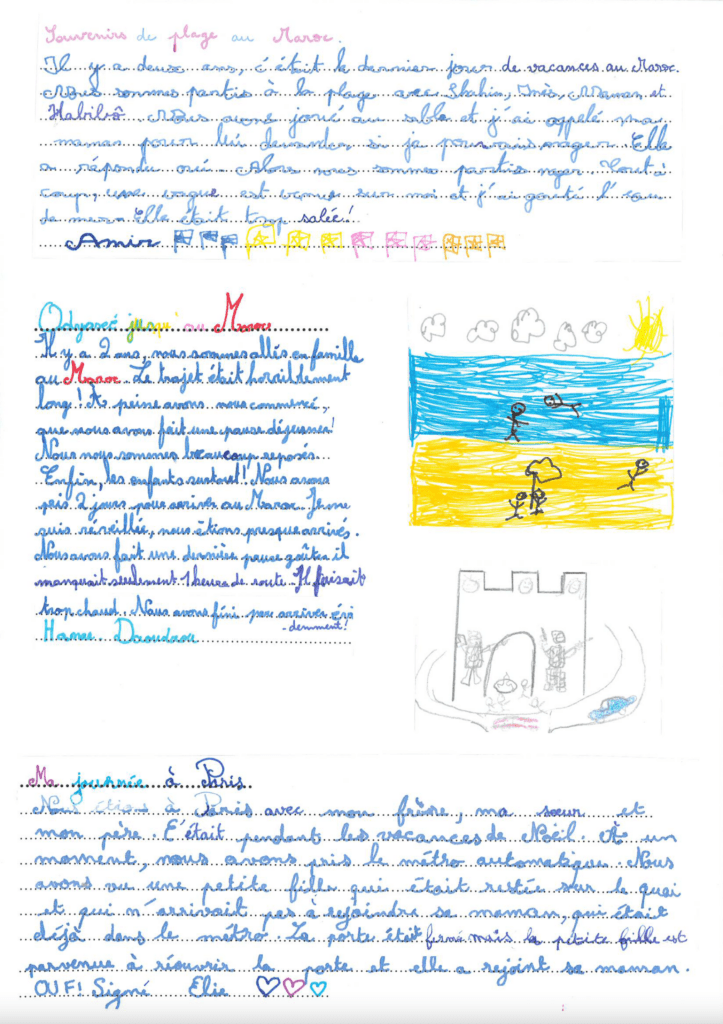 Souvenirs de plage au Maroc.
Il y a deux ans, c'était le dernier jour de vacances au Maroc.
Nous sommes partis à la plage avec Shahin, Inès, Maman et
Habibô. Nous avons joué au sable et j'ai appelé ma
maman pour lui demander si je pouvais nager. Elle
a répondu oui. Alors nous sommes partis nager. Tout à
coup, une vague est venue sur moi et j'ai gouté l'eau
de mer. Elle était trop salée!
Amir
Odyssé jusqu'au Maroc
Il y a 2 ans, nous sommes allés en famille
au Maroc. Le trajet était horriblement
long! À peine avons nous commencé,
que nous avons fait une pause déjeuner!
Nous nous sommes beaucoup reposés.
Enfin, les enfants surtout! Nous avons
pris 2 jours pour arriver au Maroc. Je me
suis réveillée, nous étions presque arrivés.
Nous avons fait une dernière pause goûter il
manquait seulement 1 heure de route. Il faisait
trop chaud. Nous avons fini par arriver évi
-demment!
Ma journée à Paris
Nous étions à Paris avec mon frère, ma sœur et
mon père. C'était pendant les vacances de Noël. À un
moment, nous avons pris le métro automatique. Nous
avons vu une petite fille qui était restée sur le quai
et qui n'arrivait pas à rejoindre sa maman, qui était
déjà dans le métro. La porte était fermé mais la petite fille est
parvenue à réouvrir la porte et elle a rejoint sa maman.
OUF! Signé Elie